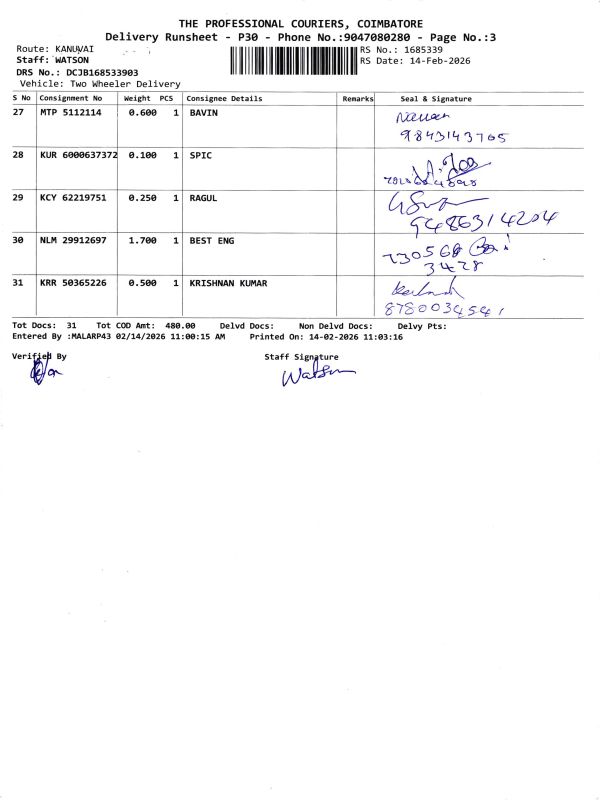 THE PROFESSIONAL COURIERS, COIMBATORE
Delivery Runsheet - P30 - Phone No.:9047080280 - Page No.:3
Route: KANUVAI
RS No.: 1685339
Staff: WATSON
RS Date: 14-Feb-2026
DRS No.: DCJB168533903
Vehicle: Two Wheeler Delivery
S No Consignment No Weight PCS Consignee Details Remarks Seal & Signature
27 MTP 5112114 0.600 1 BAVIN
9843143705
28 KUR 6000637372 0.100 1 SPIC
29 KCY 62219751 0.250 1 RAGUL
9486314204
30 NLM 29912697 1.700 1 BEST ENG
730568
3428
31 KRR 50365226 0.500 1 KRISHNAN KUMAR
8780034541
Tot Docs: 31 Tot COD Amt: 480.00 Delvd Docs: Non Delvd Docs: Delvy Pts:
Entered By :MALARP43 02/14/2026 11:00:15 AM Printed On: 14-02-2026 11:03:16
Verified By Staff Signature
Watson